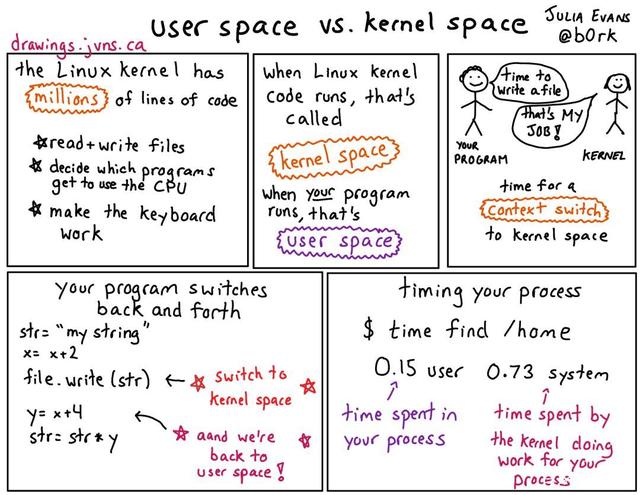 user space vs. kernel space
JULIA EVANS
@b0rk
drawings.jvns.ca
the Linux kernel has
millions of lines of code
☆ read+write files
☆ decide which programs
get to use the CPU
☆ make the keyboard
work
when Linux kernel
code runs, that's
called
kernel space
when your program
runs, that's
user space
time to
write a file
that's MY
JOB!
YOUR
PROGRAM
KERNEL
time for a
context switch
to kernel space
your program switches
back and forth
str= "my string"
x= x+2
file.write(str) ← ☆ switch to ☆
kernel space
y= x+4 ←
str= str*y
☆ aand we're ☆
back to
user space!
timing your process
$ time find /home
0.15 user 0.73 system
time spent in
your process
time spent by
the kernel doing
work for your
process